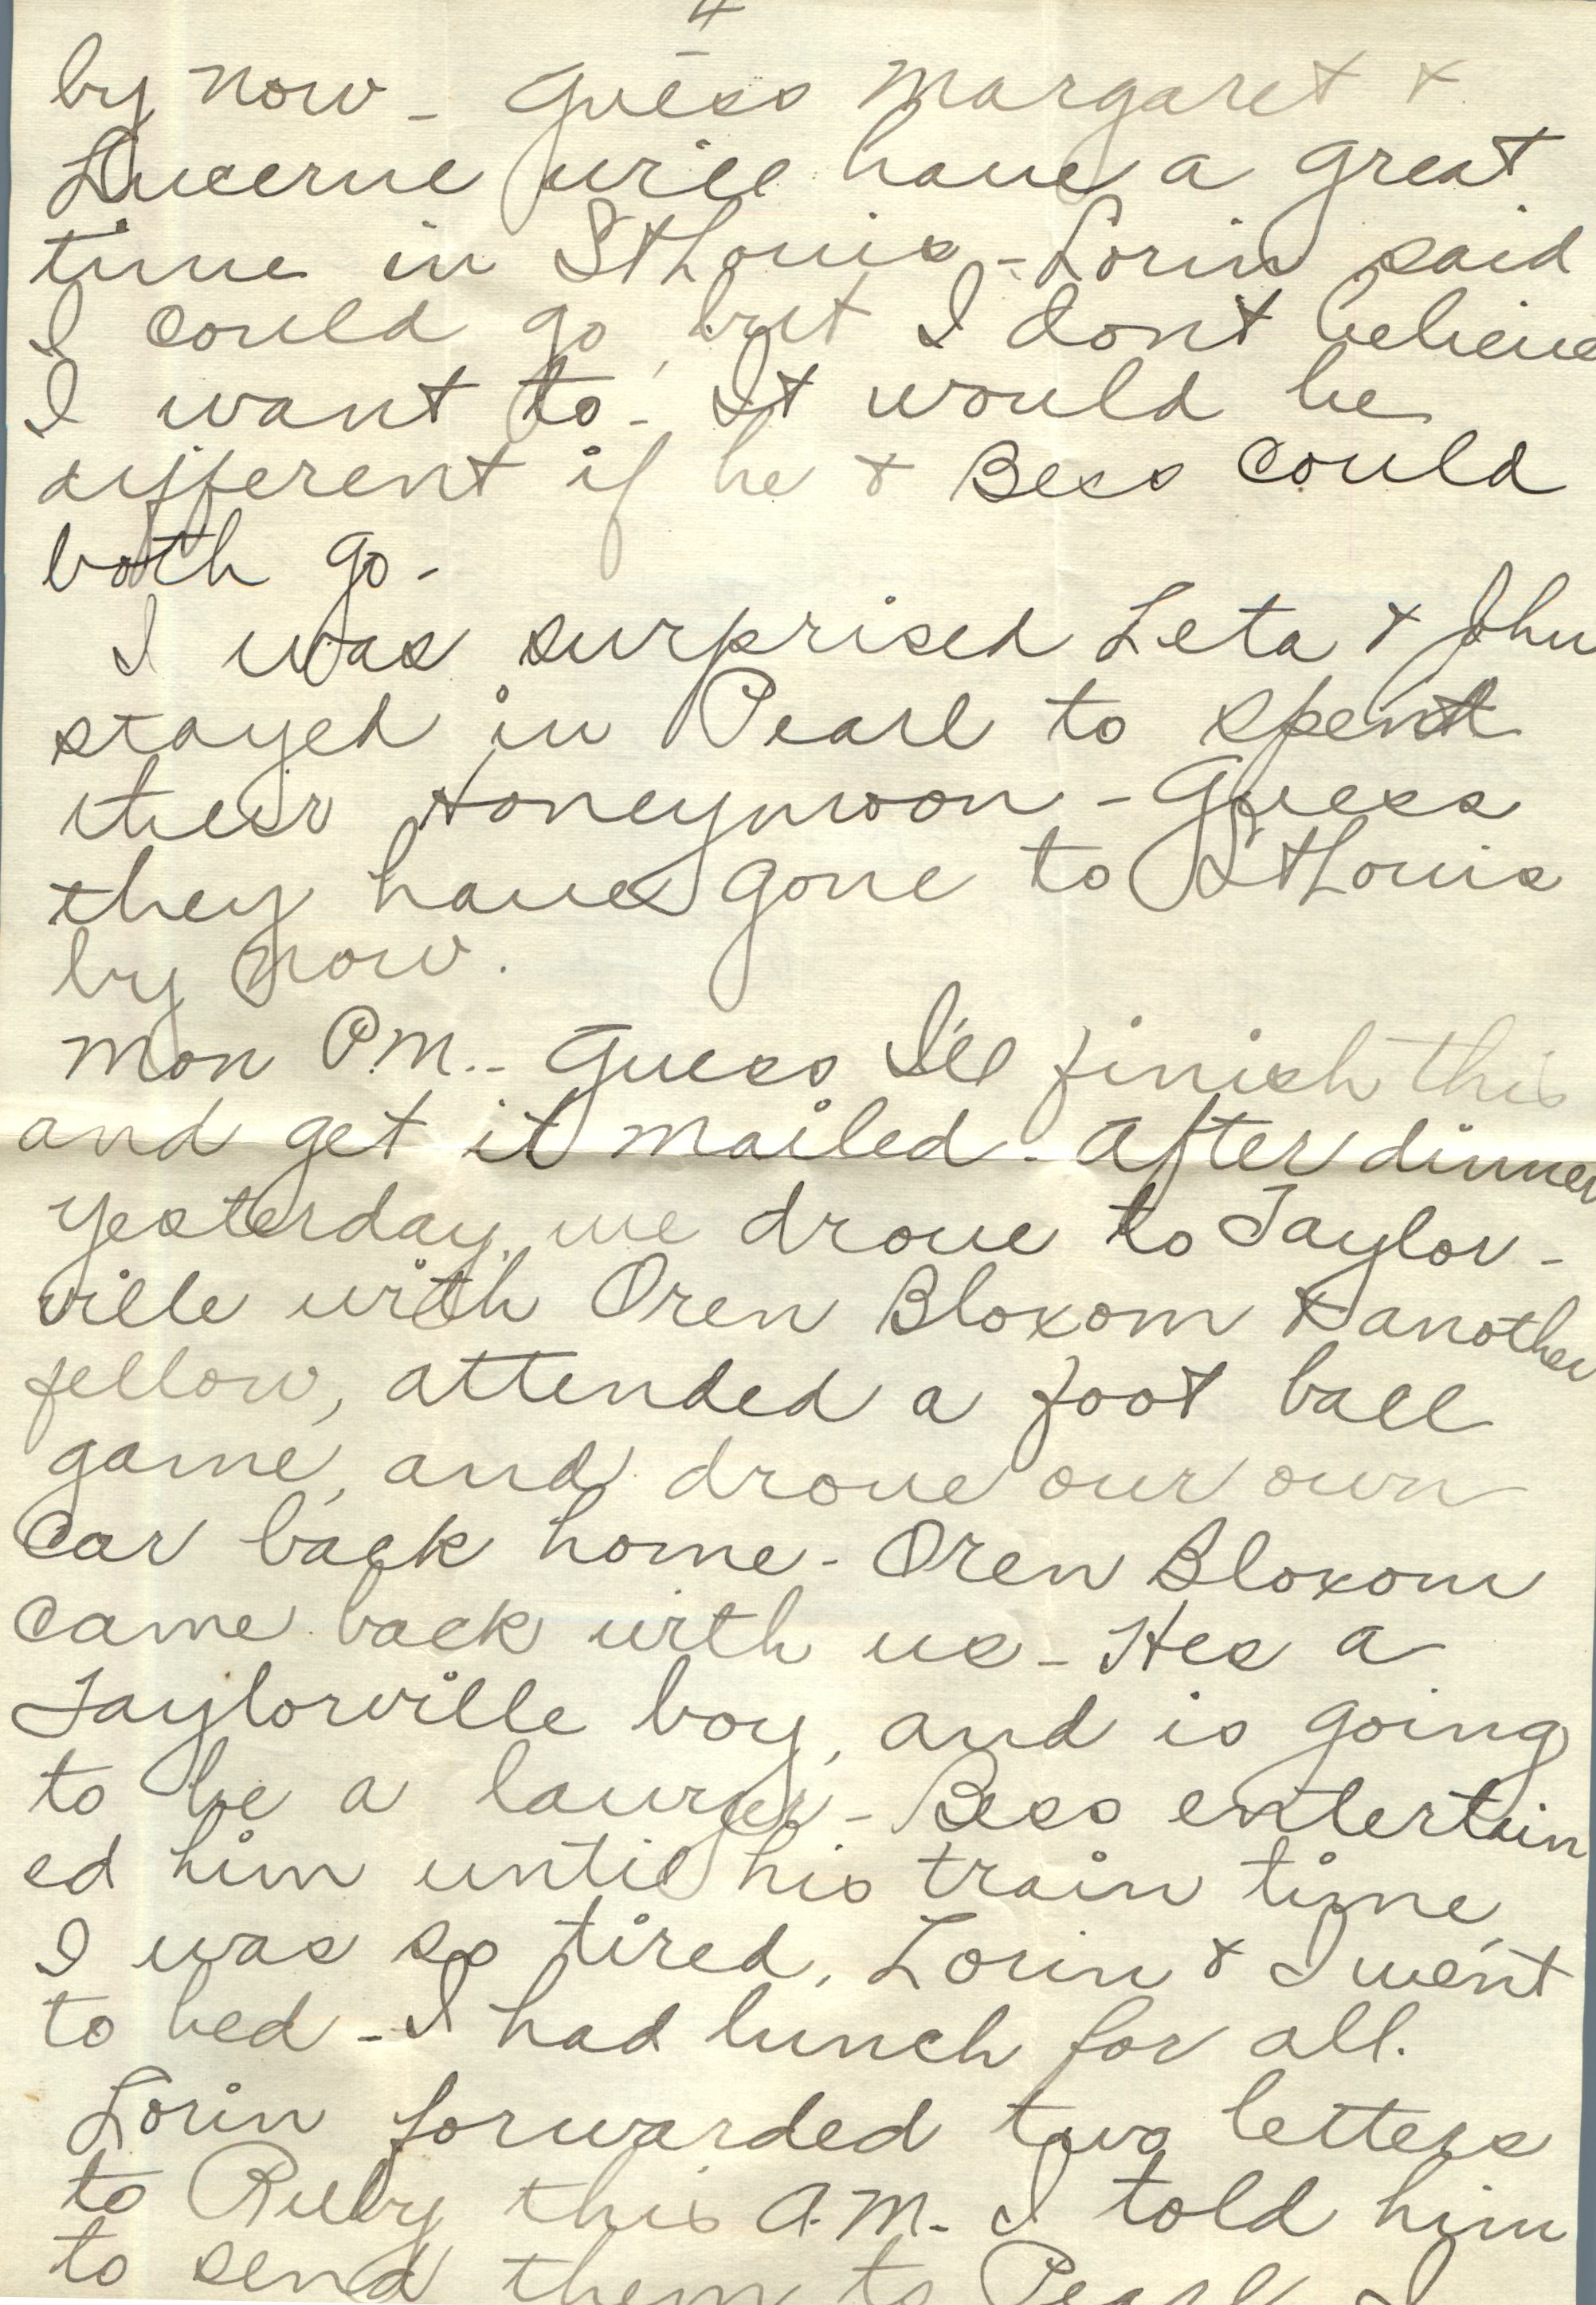 4
by now - Guess Margaret &
Lucerne will have a great
time in St Louis - Lorin said
I could go, but I dont believe
I want to - It would be
different if he & Bess could
both go -
I was surprised Leta & John
stayed in Pearl to spend
their Honeymoon - Guess
they have gone to St Louis
by now.
Mon P.M. - Guess I'll finish this
and get it mailed - After dinner
yesterday, we drove to Taylor-
ville with Oren Bloxom & another
fellow, attended a foot ball
game, and drove our own
car back home - Oren Bloxom
came back with us - Hes a
Taylorville boy, and is going
to be a lawyer - Bess entertain
ed him until his train time,
I was so tired, Lorin & I went
to bed - I had lunch for all.
Lorin forwarded two letters
to Ruby this A.M. I told him
to send them to Pearl I